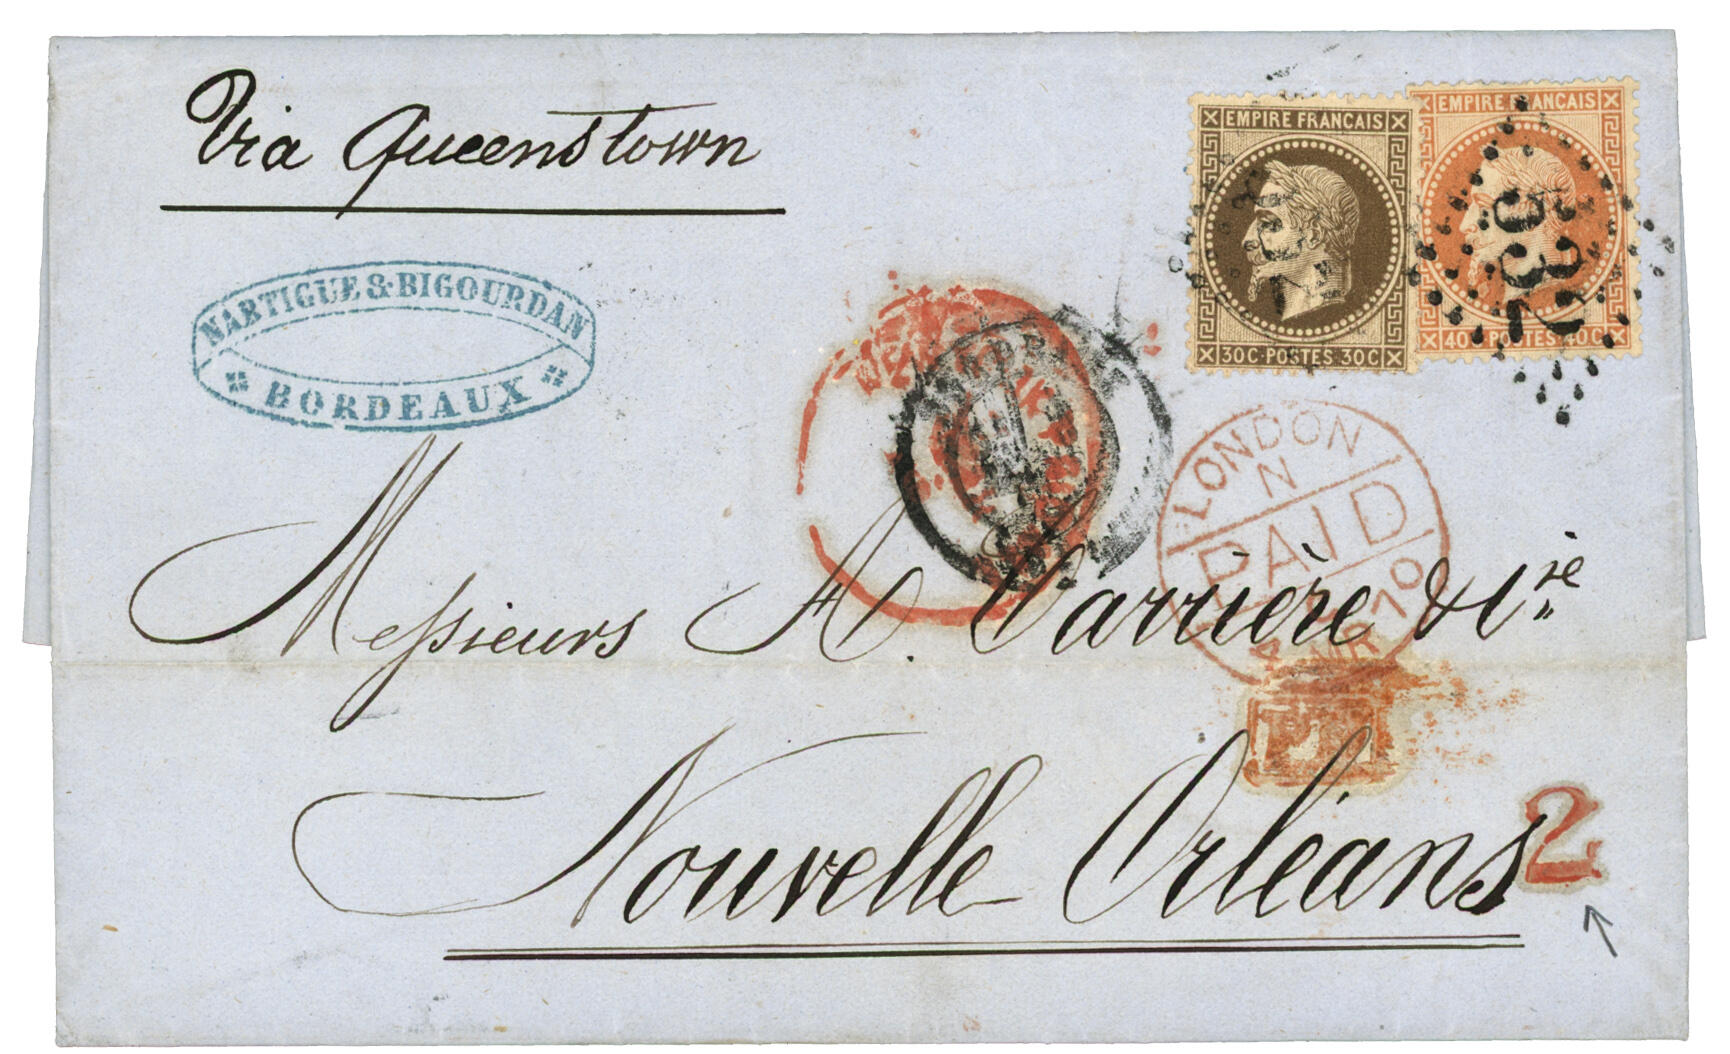 Via Queenstown
EMPIRE FRANÇAIS
30C·POSTES·30C
EMPIRE FRANÇAIS
40C·POSTES·40C
2932
NARTIGUE & BIGOURDAN
BORDEAUX
LONDON
N
PAID
4 MR 70
Messieurs A. Carrière & Cie
Nouvelle Orléans
2